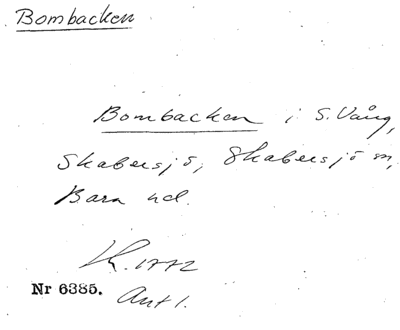 Bombacken
Bombacken i S. Vång,
Skabersjö, Skabersjö sn,
Bara hd.
LK. 1772
Nr 6385.
Ant 1.